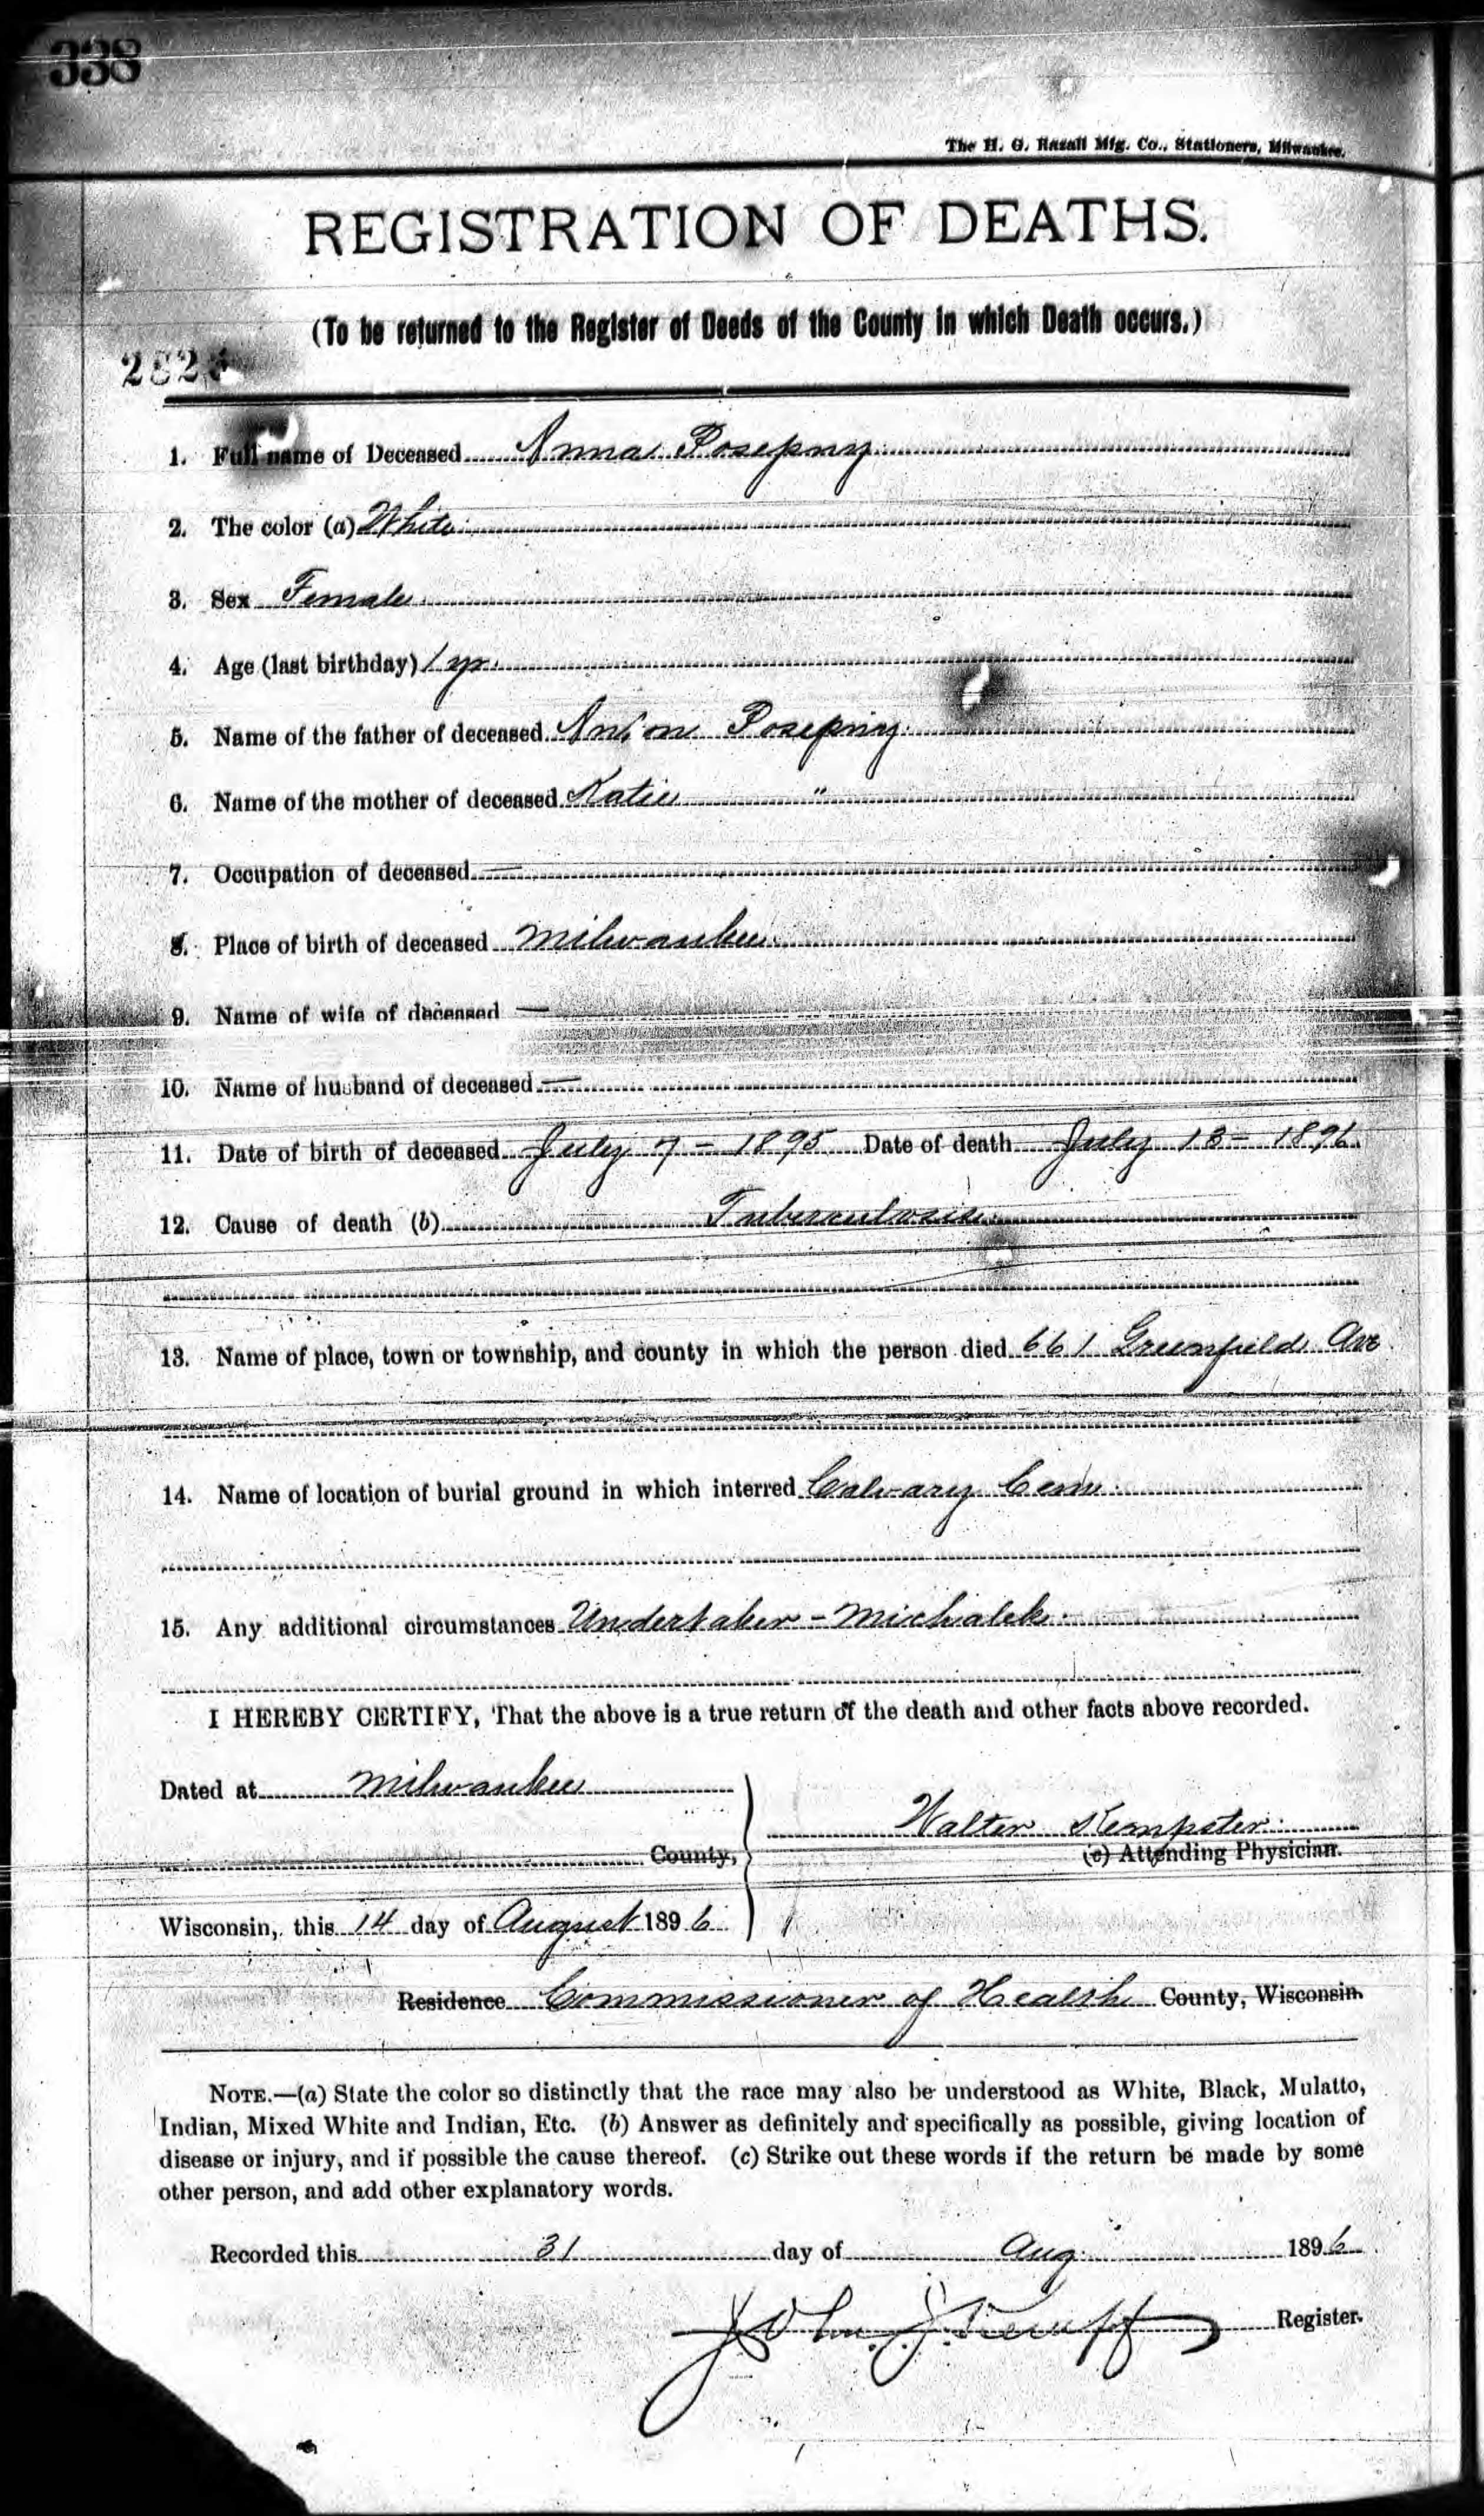 338
The H. G. Razall Mfg. Co., Stationers, Milwaukee.
REGISTRATION OF DEATHS.
(To be returned to the Register of Deeds of the County in which Death occurs.)
1. Full name of Deceased Anna Posepny
2. The color (a) White
3. Sex Female
4. Age (last birthday) 1 yr.
5. Name of the father of deceased Anton Posepny
6. Name of the mother of deceased Katie "
7. Occupation of deceased —
8. Place of birth of deceased Milwaukee
9. Name of wife of deceased —
10. Name of husband of deceased —
11. Date of birth of deceased July 7 - 1895 Date of death July 13 - 1896
12. Cause of death (b) Tuberculosis
13. Name of place, town or township, and county in which the person died 661 Greenfield Ave
14. Name of location of burial ground in which interred Calvary Cem.
15. Any additional circumstances Undertaker - Michalek
I HEREBY CERTIFY, That the above is a true return of the death and other facts above recorded.
Dated at Milwaukee
Walter Kempster
County,
(c) Attending Physician.
Wisconsin, this 14 day of August 1896
Residence Commissioner of Health County, Wisconsin
NOTE.—(a) State the color so distinctly that the race may also be understood as White, Black, Mulatto,
Indian, Mixed White and Indian, Etc. (b) Answer as definitely and specifically as possible, giving location of
disease or injury, and if possible the cause thereof. (c) Strike out these words if the return be made by some
other person, and add other explanatory words.
Recorded this 31 day of Aug. 1896
John J. Register.